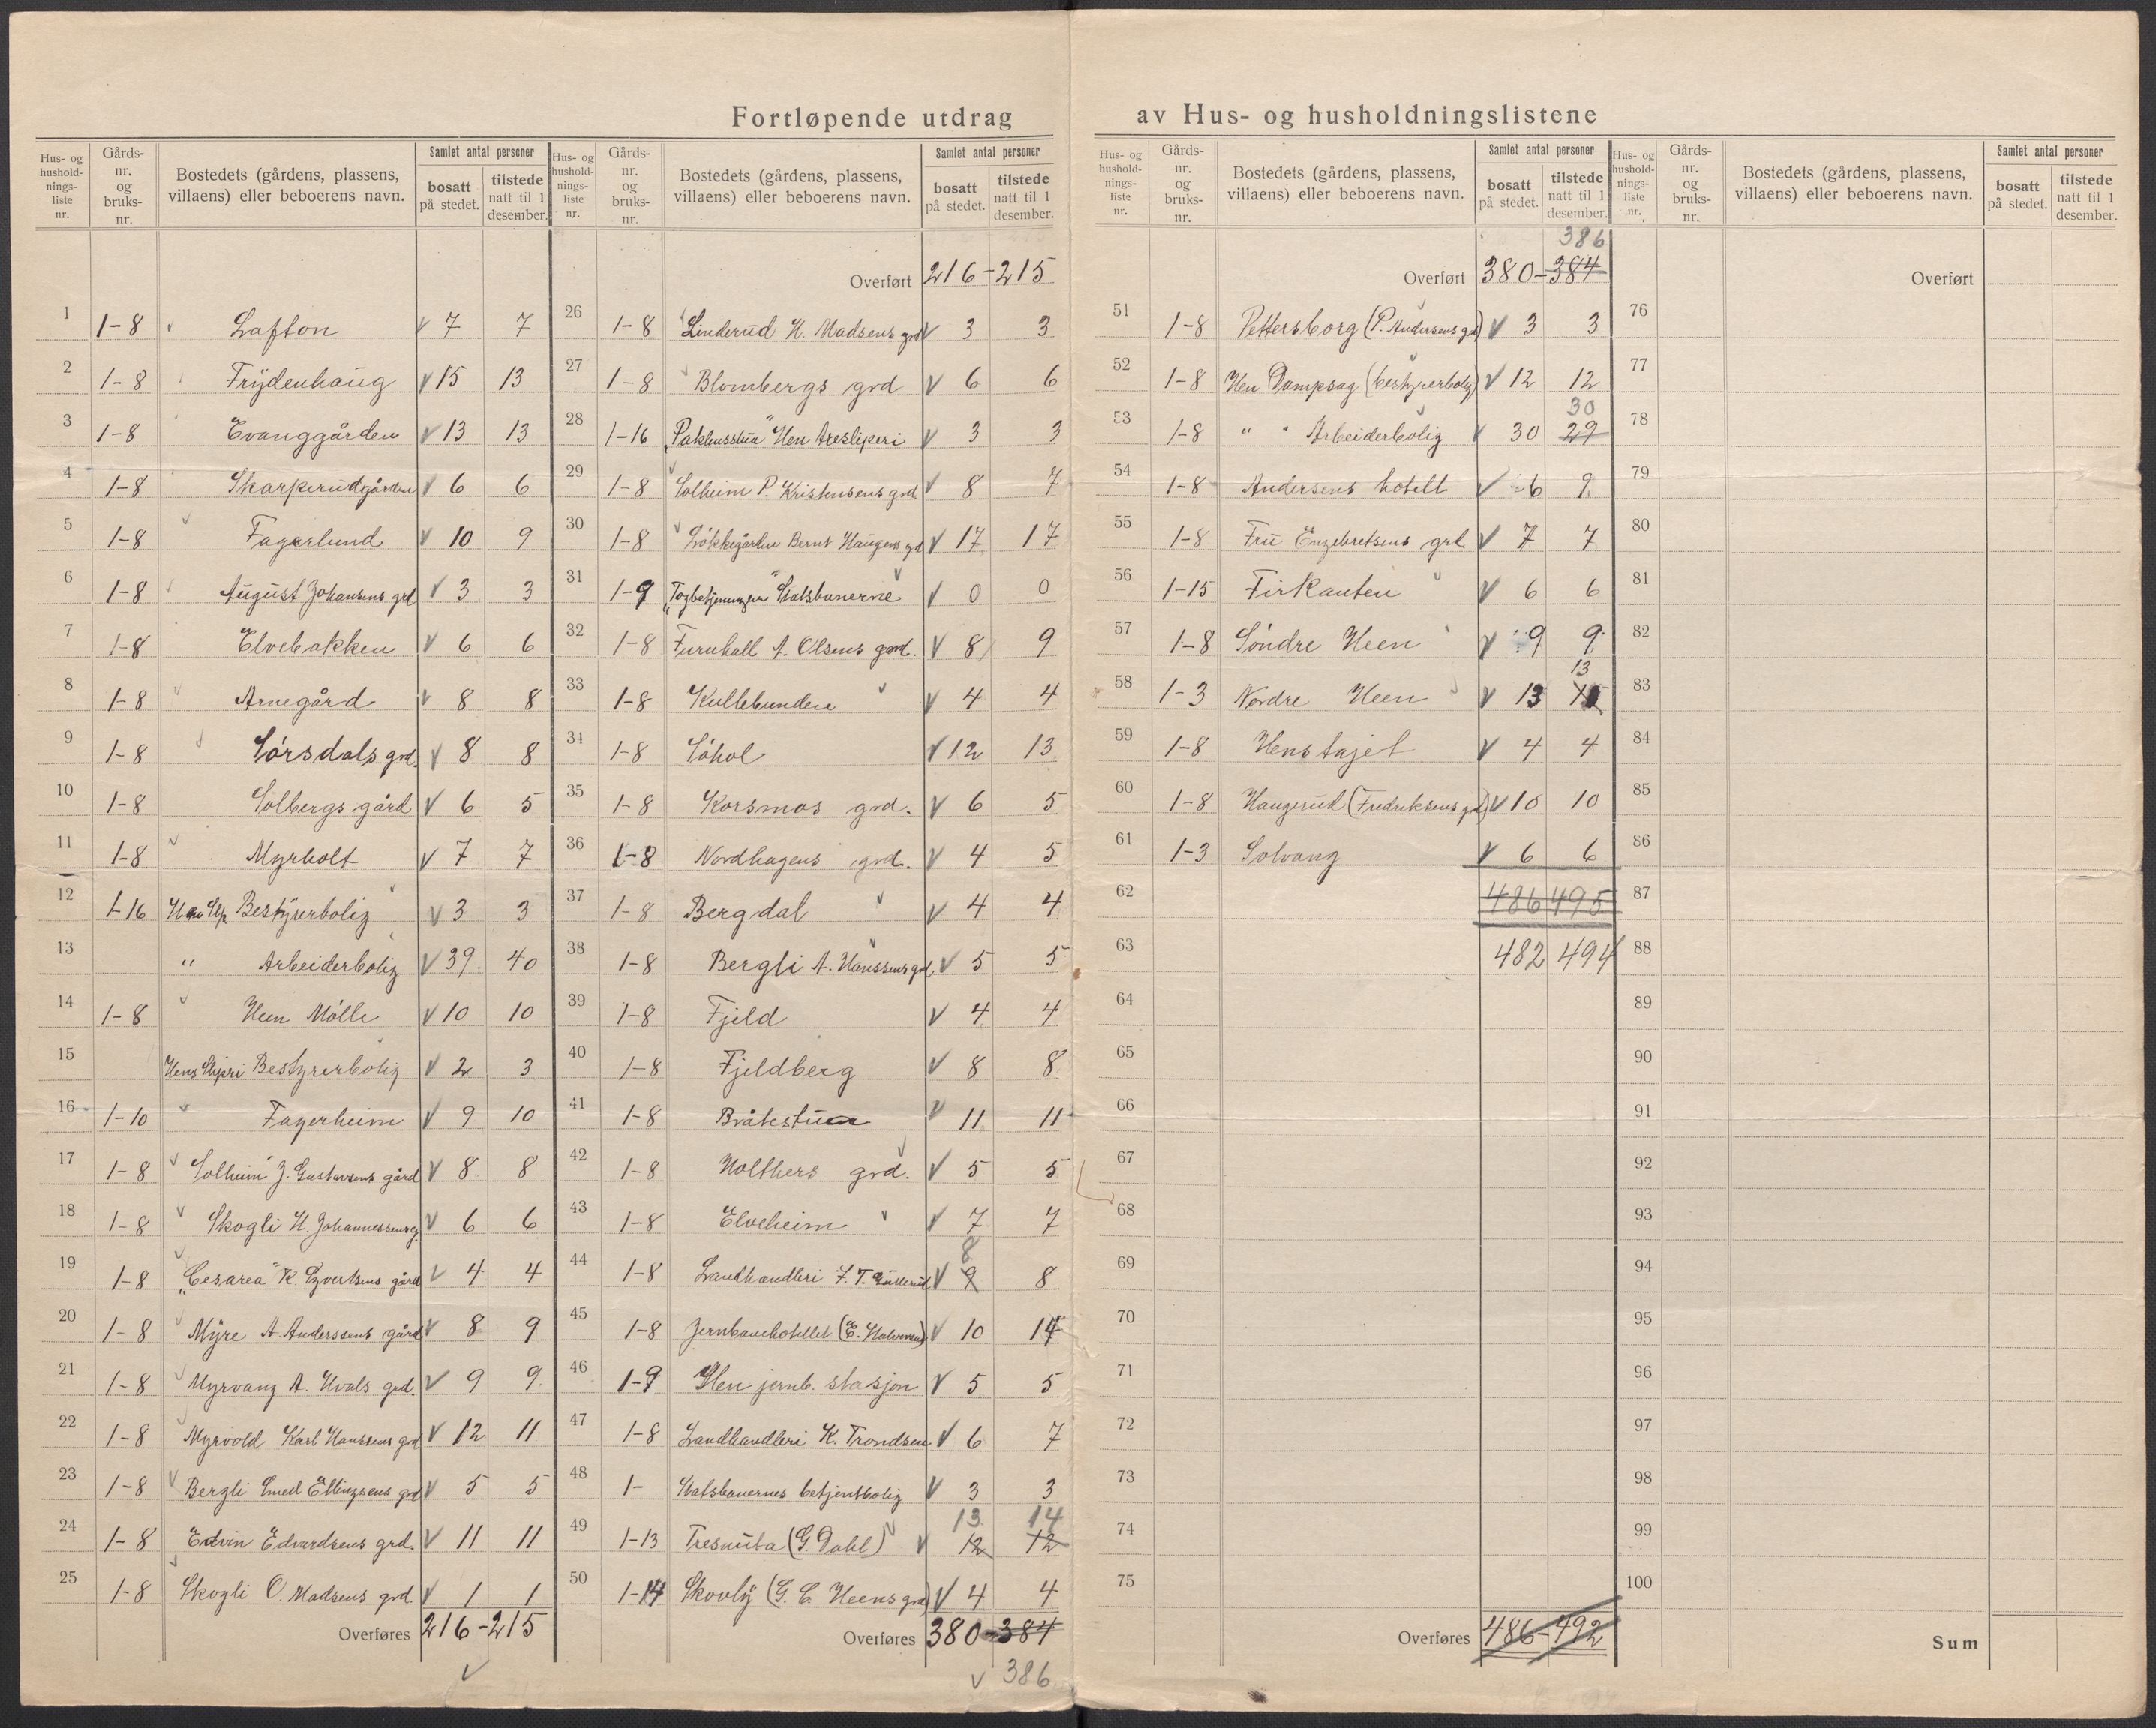 Fortløpende utdrag av Hus- og husholdningslistene
Hus- og hushold- nings- liste nr. | Gårds- nr. og bruks- nr. | Bostedets (gårdens, plassens, villaens) eller beboerens navn. | Samlet antal personer | bosatt på stedet. | tilstede natt til 1 desember.
1 1-8 Lafton 7 7
2 1-8 Frydenhaug 15 13
3 1-8 Evanggården 13 13
4 1-8 Skarperudgården 6 6
5 1-8 Fagerlund 10 9
6 1-8 August Johansens grd 3 3
7 1-8 Elvebakken 6 6
8 1-8 Arnegård 8 8
9 1-8 Sørsdals grd. 8 8
10 1-8 Solbergs gård 6 5
11 1-8 Myrholt 7 7
12 1-16 Hen Slip Bestyrerbolig 3 3
13 " Arbeiderbolig 39 40
14 1-8 Heen Mølle 10 10
15 Hens Slipri Bestyrerbolig 2 3
16 1-10 Fagerheim 9 10
17 1-8 Solheim J. Gustavsens gård 8 8
18 1-8 Skogli H. Johannessens g. 6 6
19 1-8 "Cesarea" K. Syvertsens gård 4 4
20 1-8 Myre A. Anderssens gård 8 9
21 1-8 Myrvang A. Hvals grd. 9 9
22 1-8 Myrvold Karl Hanssens grd 12 11
23 1-8 Bergli Emil Ellingsens grd 5 5
24 1-8 Edvin Edvardsens grd. 11 11
25 1-8 Skogli O. Madsens grd 1 1
Overføres 216-215
Hus- og hushold- nings- liste nr. | Gårds- nr. og bruks- nr. | Bostedets (gårdens, plassens, villaens) eller beboerens navn. | Samlet antal personer | bosatt på stedet. | tilstede natt til 1 desember.
Overført 216-215
26 1-8 Linderud H. Madsens grd 3 3
27 1-8 Blombergs grd 6 6
28 1-16 "Pakhusstua" Hen tresliperi 3 3
29 1-8 Solheim P. Kristensens grd 8 7
30 1-8 Løkkegården Bernt Haugens gd 17 17
31 1-9 "Togbetjeningen" Statsbanerne 0 0
32 1-8 Furuhall A. Olsens grd. 8 9
33 1-8 Kullebunden 4 4
34 1-8 Søhol 12 13
35 1-8 Korsmos grd. 6 5
36 1-8 Nordhagens grd. 4 5
37 1-8 Bergdal 4 4
38 1-8 Bergli A. Hanssens gd. 5 5
39 1-8 Fjeld 4 4
40 1-8 Fjeldberg 8 8
41 1-8 Bråtestuen 11 11
42 1-8 Holthers grd. 5 5
43 1-8 Elveheim 7 7
8
44 1-8 Landhandleri 9 8
45 1-8 Jernbanehotellet (E. Halvorsen) 10 14
46 1-9 Hen jernb. stasjon 5 5
47 1-8 Landhandleri K. Trondsen 6 7
48 1- Statsbanernes betjentbolig 3 3
13 14
49 1-13 Tresnuta (G. Dahl) 12 12
50 1-14 Skovly (G. E. Heens grd) 4 4
Overføres 380-384
386
Hus- og hushold- nings- liste nr. | Gårds- nr. og bruks- nr. | Bostedets (gårdens, plassens, villaens) eller beboerens navn. | Samlet antal personer | bosatt på stedet. | tilstede natt til 1 desember.
386
Overført 380-384
51 1-8 Pettersborg (P. Andersens gd) 3 3
52 1-8 Hen Dampsag (bestyrerbolig) 12 12
30
53 1-8 " " Arbeiderbolig 30 29
54 1-8 Andersens hotell 6 9
55 1-8 Fru Engebretsens grd. 7 7
56 1-15 Firkanten 6 6
57 1-8 Søndre Heen 9 9
13
58 1-3 Nordre Heen 13
59 1-8 Henstajet 4 4
60 1-8 Haugerud (Fredriksens gd) 10 10
61 1-3 Solvang 6 6
62 486 495
63 482 494
64
65
66
67
68
69
70
71
72
73
74
75
Overføres 486-492
Hus- og hushold- nings- liste nr. | Gårds- nr. og bruks- nr. | Bostedets (gårdens, plassens, villaens) eller beboerens navn. | Samlet antal personer | bosatt på stedet. | tilstede natt til 1 desember.
Overført
76
77
78
79
80
81
82
83
84
85
86
87
88
89
90
91
92
93
94
95
96
97
98
99
100
Sum